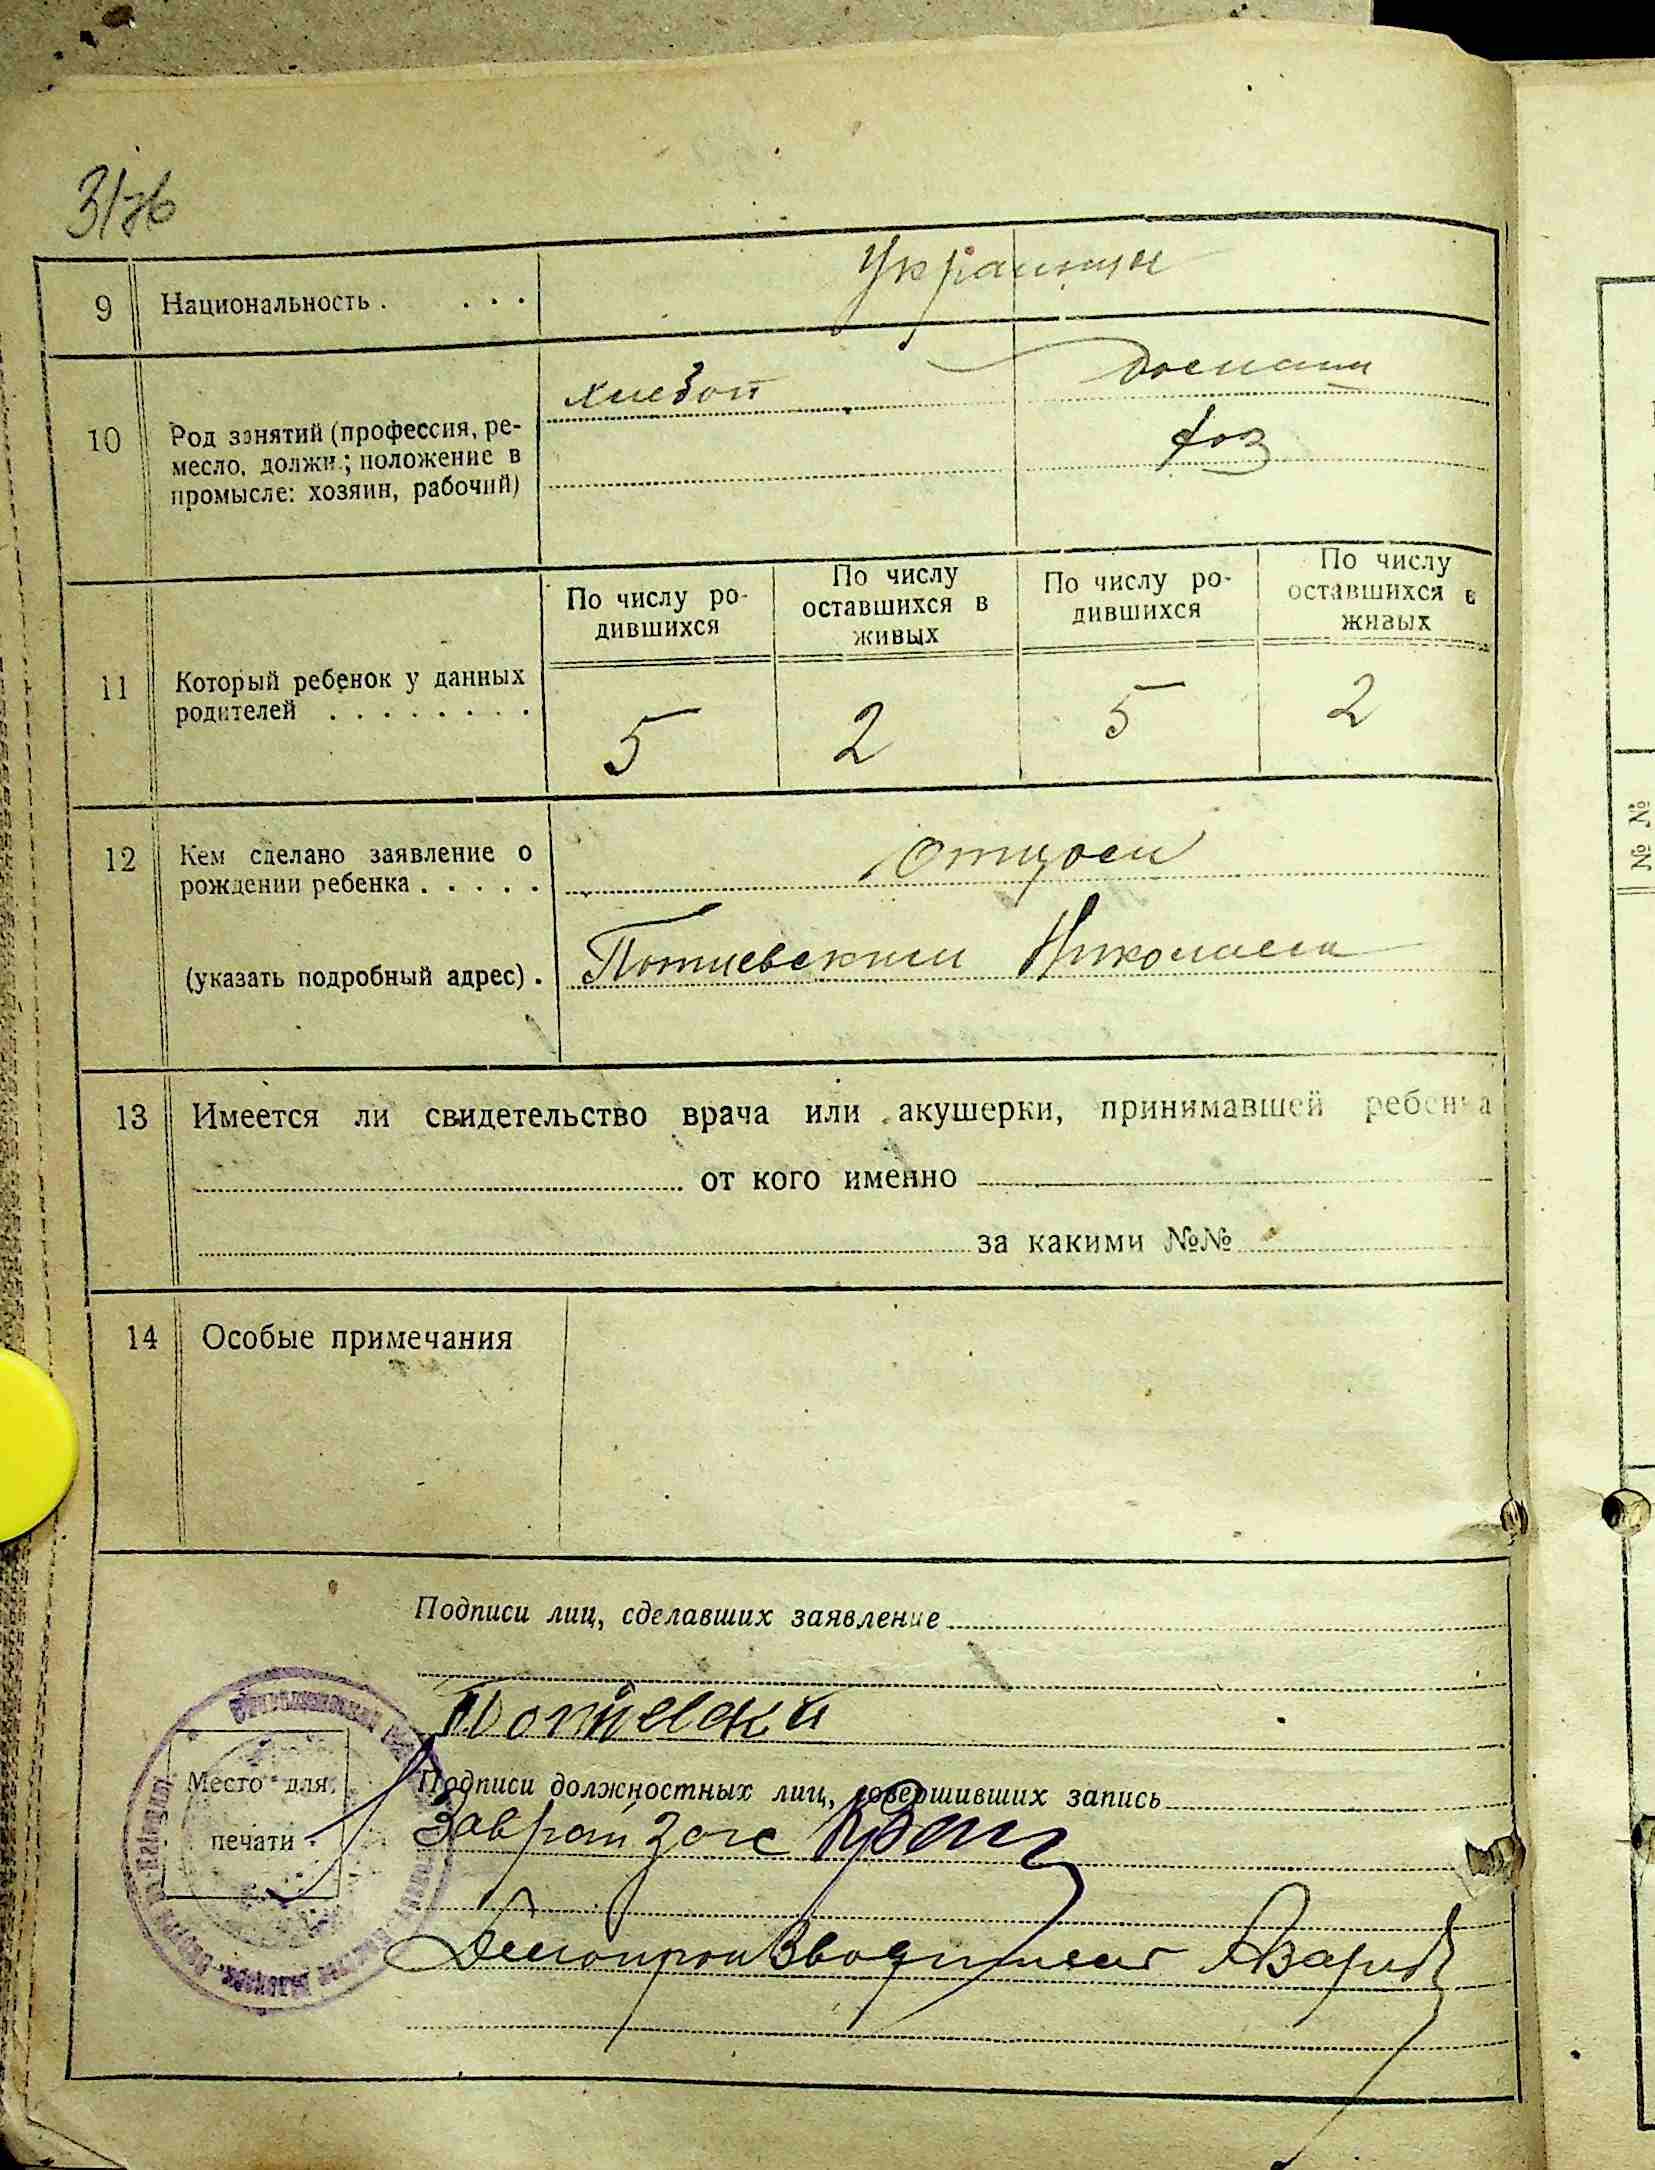 9 Национальность . . . . Украинцы
10 Род занятий (профессия, ре-
месло, должн.; положение в
промысле: хозяин, рабочий)
хлебоп
домаш
хоз
11 Который ребенок у данных
родителей . . . . . . . .
По числу ро-
дившихся
По числу
оставшихся в
живых
По числу ро-
дившихся
По числу
оставшихся в
живых
5 2 5 2
12 Кем сделано заявление о
рождении ребенка . . . . .
Отцом
(указать подробный адрес) .
Николаем
13 Имеется ли свидетельство врача или акушерки, принимавшей ребенка
от кого именно
за какими №№
14 Особые примечания
Подписи лиц, сделавших заявление
Место для
печати
Подписи должностных лиц, совершивших запись
Заврайзагс
Делопроизводитель
№ №